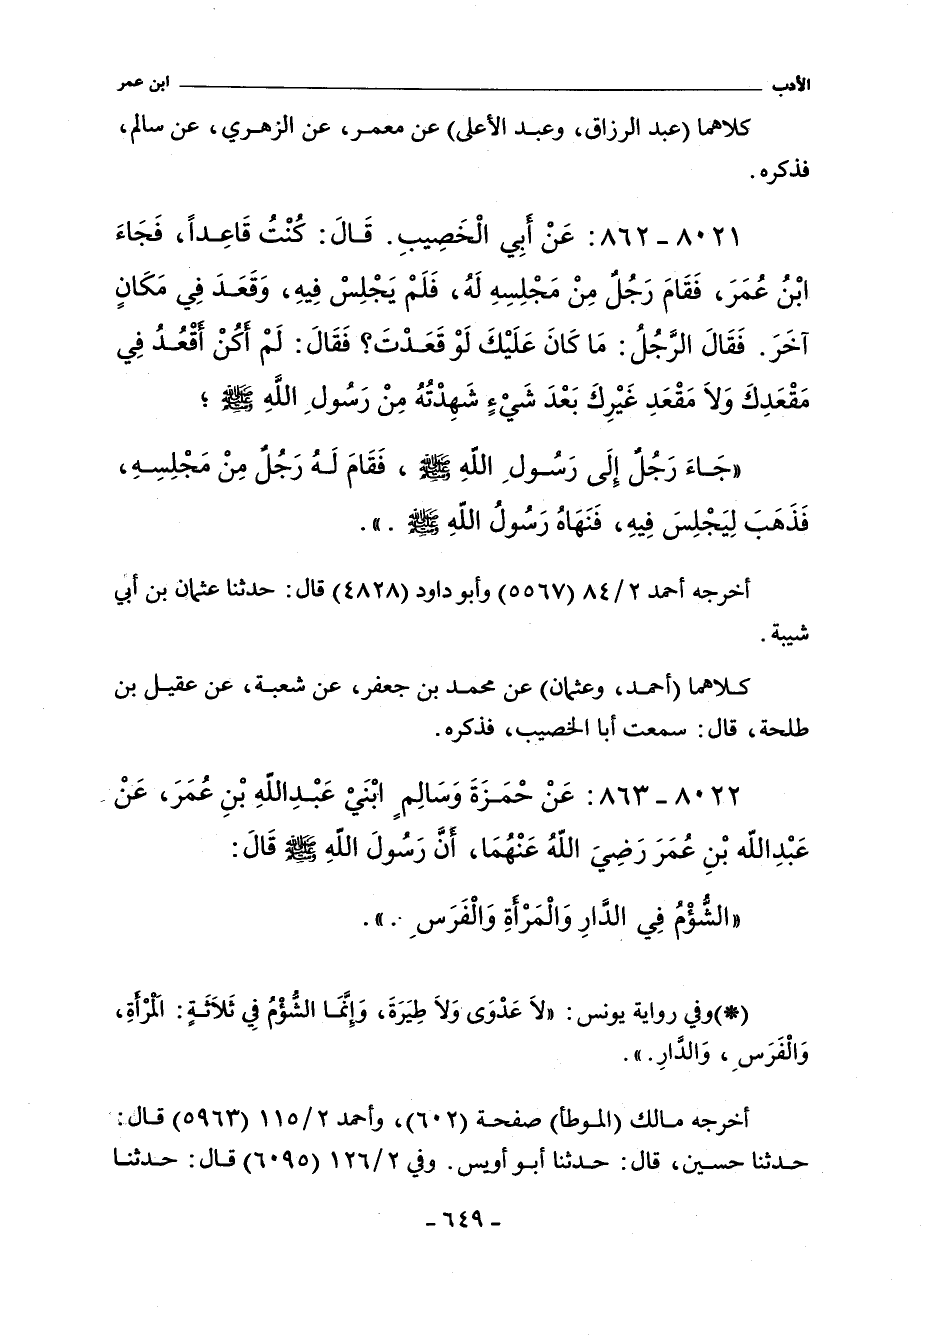 الأدب ابن عمر
كلاهما (عبد الرزاق، وعبد الأعلى) عن معمر، عن الزهري، عن سالم،
فذكره.
٨٠٢١ - ٨٦٢: عَنْ أَبِي الْخَصِيبِ. قَالَ: كُنْتُ قَاعِداً، فَجَاءَ
ابْنُ عُمَرَ، فَقَامَ رَجُلٌ مِنْ مَجْلِسِهِ لَهُ، فَلَمْ يَجْلِسْ فِيهِ، وَقَعَدَ فِي مَكَانٍ
آخَرَ. فَقَالَ الرَّجُلُ: مَا كَانَ عَلَيْكَ لَوْ قَعَدْتَ؟ فَقَالَ: لَمْ أَكُنْ أَقْعُدُ فِي
مَقْعَدِكَ وَلاَ مَقْعَدِ غَيْرِكَ بَعْدَ شَيْءٍ شَهِدْتُهُ مِنْ رَسُولِ اللَّهِ ﷺ؛
«جَاءَ رَجُلٌ إِلَى رَسُولِ اللَّهِ ﷺ، فَقَامَ لَهُ رَجُلٌ مِنْ مَجْلِسِهِ،
فَذَهَبَ لِيَجْلِسَ فِيهِ، فَنَهَاهُ رَسُولُ اللَّهِ ﷺ.».
أخرجه أحمد ٨٤/٢ (٥٥٦٧) وأبو داود (٤٨٢٨) قال: حدثنا عثمان بن أبي
شيبة.
كلاهما (أحمد، وعثمان) عن محمد بن جعفر، عن شعبة، عن عقيل بن
طلحة، قال: سمعت أبا الخصيب، فذكره.
٨٠٢٢ - ٨٦٣: عَنْ حَمْزَةَ وَسَالِمٍ ابْنَيْ عَبْدِاللَّهِ بْنِ عُمَرَ، عَنْ
عَبْدِاللَّهِ بْنِ عُمَرَ رَضِيَ اللَّهُ عَنْهُمَا، أَنَّ رَسُولَ اللَّهِ ﷺ قَالَ:
«الشُّؤْمُ فِي الدَّارِ وَالْمَرْأَةِ وَالْفَرَسِ.».
(*)وفي رواية يونس: «لاَ عَدْوَى وَلاَ طِيَرَةَ، وَإِنَّمَا الشُّؤْمُ فِي ثَلاَثَةٍ: الْمَرْأَةِ،
وَالْفَرَسِ، وَالدَّارِ.».
أخرجه مالك (الموطأ) صفحة (٦٠٢)، وأحمد ١١٥/٢ (٥٩٦٣) قال:
حدثنا حسين، قال: حدثنا أبو أويس. وفي ١٢٦/٢ (٦٠٩٥) قال: حدثنا
- ٦٤٩ -